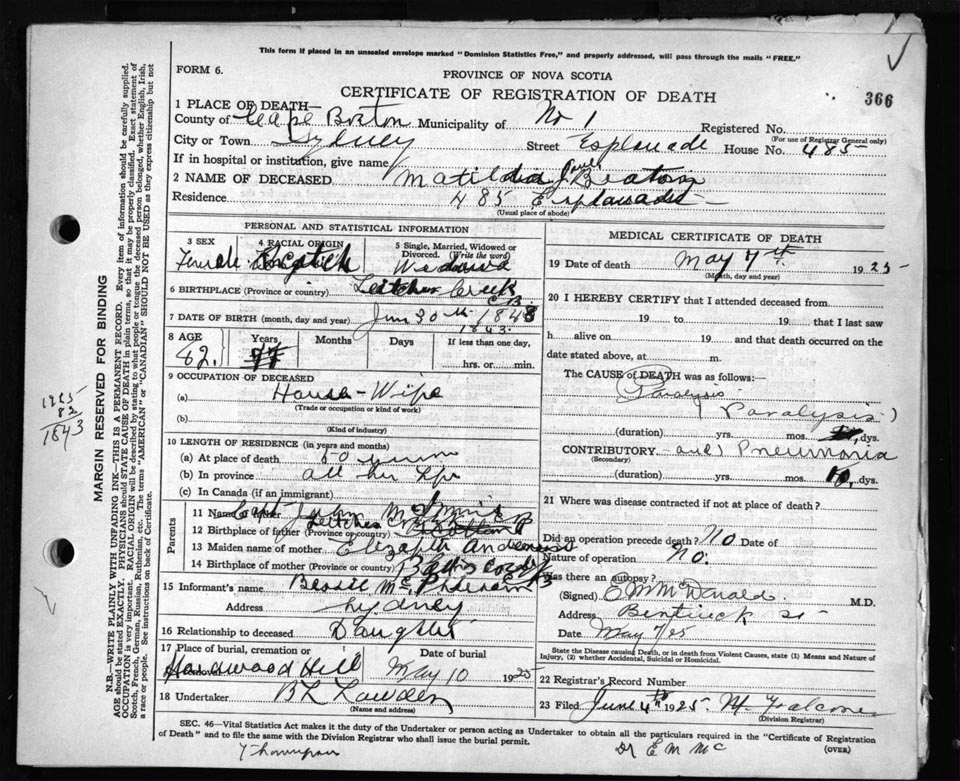 This form if placed in an unsealed envelope marked "Dominion Statistics Free," and properly addressed, will pass through the mails "FREE."
FORM 6.
PROVINCE OF NOVA SCOTIA
CERTIFICATE OF REGISTRATION OF DEATH
366
1 PLACE OF DEATH—
County of Cape Breton Municipality of No 1 Registered No.
(For use of Registrar General only)
City or Town Sydney Street Esplanade House No. 485
If in hospital or institution, give name
2 NAME OF DECEASED Matilda Beaton
Residence 485 Esplanade
(Usual place of abode)
PERSONAL AND STATISTICAL INFORMATION
3 SEX 4 RACIAL ORIGIN 5 Single, Married, Widowed or Divorced. (Write the word)
Female Scotch Widow
6 BIRTHPLACE (Province or country) Leitches Creek C B
7 DATE OF BIRTH (month, day and year) 30th 1848
1843.
8 AGE Years Months Days If less than one day,
82. 77 hrs. or min.
9 OCCUPATION OF DECEASED
(a) House-Wife
(Trade or occupation or kind of work)
(b)
(Kind of industry)
10 LENGTH OF RESIDENCE (in years and months)
(a) At place of death 50
(b) In province all her life
(c) In Canada (if an immigrant)
Parents
11 Name of father Capt John
12 Birthplace of father (Province or country) Leitches Creek C B
13 Maiden name of mother Elizabeth
14 Birthplace of mother (Province or country)
15 Informant's name Bessie
Address Sydney
16 Relationship to deceased Daughter
17 Place of burial, cremation or removal Date of burial
Hardwood Hill May 10 1925
18 Undertaker
(Name and address)
MEDICAL CERTIFICATE OF DEATH
19 Date of death May 7th 1925
(Month, day and year)
20 I HEREBY CERTIFY that I attended deceased from
19 to 19 that I last saw
h alive on 19 and that death occurred on the
date stated above, at m.
The CAUSE of DEATH was as follows:
Paralysis
(Paralysis)
(duration) yrs. mos. dys.
CONTRIBUTORY and Pneumonia
(Secondary)
(duration) yrs. mos. 10, dys.
21 Where was disease contracted if not at place of death?
Did an operation precede death? No Date of
Nature of operation? No.
Was there an autopsy?
(Signed) E M McDonald M.D.
Address Bentinck St
Date May 7/25
State the Disease causing Death, or in death from Violent Causes, state (1) Means and Nature of Injury, (2) whether Accidental, Suicidal or Homicidal.
22 Registrar's Record Number
23 Filed June 4th 1925
(Division Registrar)
SEC. 46—Vital Statistics Act makes it the duty of the Undertaker or person acting as Undertaker to obtain all the particulars required in the "Certificate of Registration
of Death" and to file the same with the Division Registrar who shall issue the burial permit. (OVER)
Thompson
Dr E M Mc
MARGIN RESERVED FOR BINDING
N.B.—WRITE PLAINLY WITH UNFADING INK—THIS IS A PERMANENT RECORD. Every item of information should be carefully supplied.
AGE should be stated EXACTLY. PHYSICIANS should STATE CAUSE OF DEATH in plain terms, so that it may be properly classified. Exact statement of
OCCUPATION is very important. RACIAL ORIGIN will be described by stating to what people or tongue the deceased person belonged, whether English, Irish,
Scotch, French, German, Russian, Ruthenian, etc. The terms "AMERICAN" or "CANADIAN" SHOULD NOT BE USED as they express citizenship but not
a race or people. See instructions on back of Certificate.
1925
82
1843